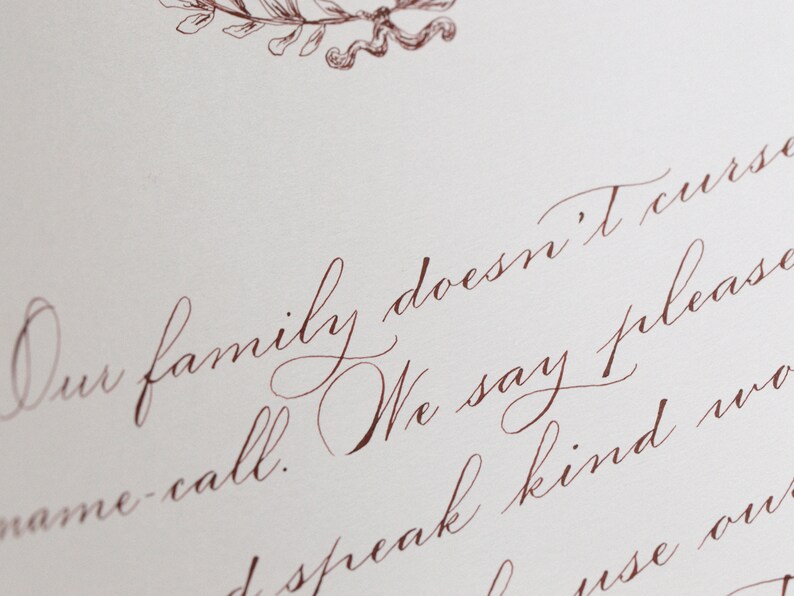 Our family doesn't curse
name-call. We say please
speak kind
use our